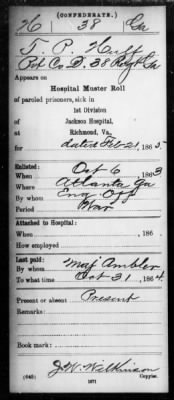 (CONFEDERATE.)
H 38 Ga
T. P. Huff
Pvt Co. D, 38 Reg't Ga
Appears on
Hospital Muster Roll
of paroled prisoners, sick in
1st Division
Jackson Hospital,
at
Richmond, Va.,
for dated Feb 21, 1865.
Enlisted:
When Oct 6, 1863
Where Atlanta Ga
By whom Enq Off
Period War
Attached to Hospital:
When , 186 .
How employed
Last paid:
By whom Maj Ambler
To what time Oct 31, 1864.
Present or absent Present
Remarks:
Book mark:
J. W. Wilkinson
(645) 1871 Copyist.